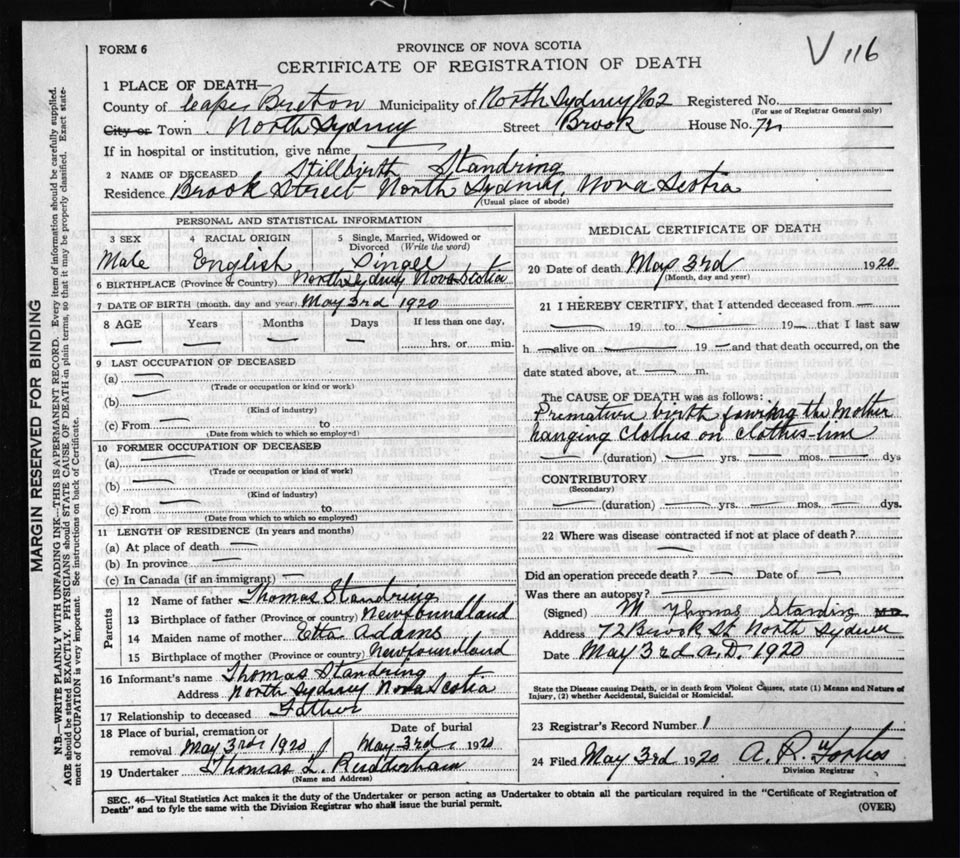 FORM 6
PROVINCE OF NOVA SCOTIA
V 116
CERTIFICATE OF REGISTRATION OF DEATH
1 PLACE OF DEATH—
County of Cape Breton Municipality of North Sydney No2 Registered No.
(For use of Registrar General only)
City or Town North Sydney Street Brook House No. 72
If in hospital or institution, give name
2 NAME OF DECEASED Stillbirth Standring
Residence Brook Street North Sydney, Nova Scotia
(Usual place of abode)
PERSONAL AND STATISTICAL INFORMATION
3 SEX 4 RACIAL ORIGIN 5 Single, Married, Widowed or Divorced (Write the word)
Male English Single
6 BIRTHPLACE (Province or Country) North Sydney Nova Scotia
7 DATE OF BIRTH (month, day and year) May 3rd 1920
8 AGE Years Months Days If less than one day,
hrs. or min.
9 LAST OCCUPATION OF DECEASED
(a)
(Trade or occupation or kind or work)
(b)
(Kind of industry)
(c) From to
(Date from which to which so employed)
10 FORMER OCCUPATION OF DECEASED
(a)
(Trade or occupation or kind of work)
(b)
(Kind of industry)
(c) From to
(Date from which to which so employed)
11 LENGTH OF RESIDENCE (In years and months)
(a) At place of death
(b) In province
(c) In Canada (if an immigrant)
Parents
12 Name of father Thomas Standring
13 Birthplace of father (Province or country) Newfoundland
14 Maiden name of mother Etta Adams
15 Birthplace of mother (Province or country) Newfoundland
16 Informant's name Thomas Standring
Address North Sydney Nova Scotia
17 Relationship to deceased Father
18 Place of burial, cremation or removal Date of burial
May 3rd 1920 May 3rd 1920
19 Undertaker Thomas L. Rudderham
(Name and Address)
MEDICAL CERTIFICATE OF DEATH
20 Date of death May 3rd 1920
(Month, day and year)
21 I HEREBY CERTIFY, that I attended deceased from
19 to 19 that I last saw
h alive on 19 and that death occurred, on the
date stated above, at m.
The CAUSE OF DEATH was as follows:
Premature birth the Mother
hanging clothes on clothes-line
(duration) yrs. mos. dys
CONTRIBUTORY
(Secondary)
(duration) yrs. mos. dys.
22 Where was disease contracted if not at place of death?
Did an operation precede death? Date of
Was there an autopsy?
(Signed) M Thomas Standing M.D.
Address 72 Brook St North Sydney
Date May 3rd A.D. 1920
State the Disease causing Death, or in death from Violent Causes, state (1) Means and Nature of
Injury, (2) whether Accidental, Suicidal or Homicidal.
23 Registrar's Record Number 1
24 Filed May 3rd 1920 A. R. Forbes
Division Registrar
SEC. 46—Vital Statistics Act makes it the duty of the Undertaker or person acting as Undertaker to obtain all the particulars required in the "Certificate of Registration of
Death" and to fyle the same with the Division Registrar who shall issue the burial permit.
(OVER)
MARGIN RESERVED FOR BINDING
N.B.—WRITE PLAINLY WITH UNFADING INK—THIS IS A PERMANENT RECORD. Every item of information should be carefully supplied.
AGE should be stated EXACTLY. PHYSICIANS should STATE CAUSE OF DEATH in plain terms, so that it may be properly classified. Exact state-
ment of OCCUPATION is very important. See instructions on back of Certificate.